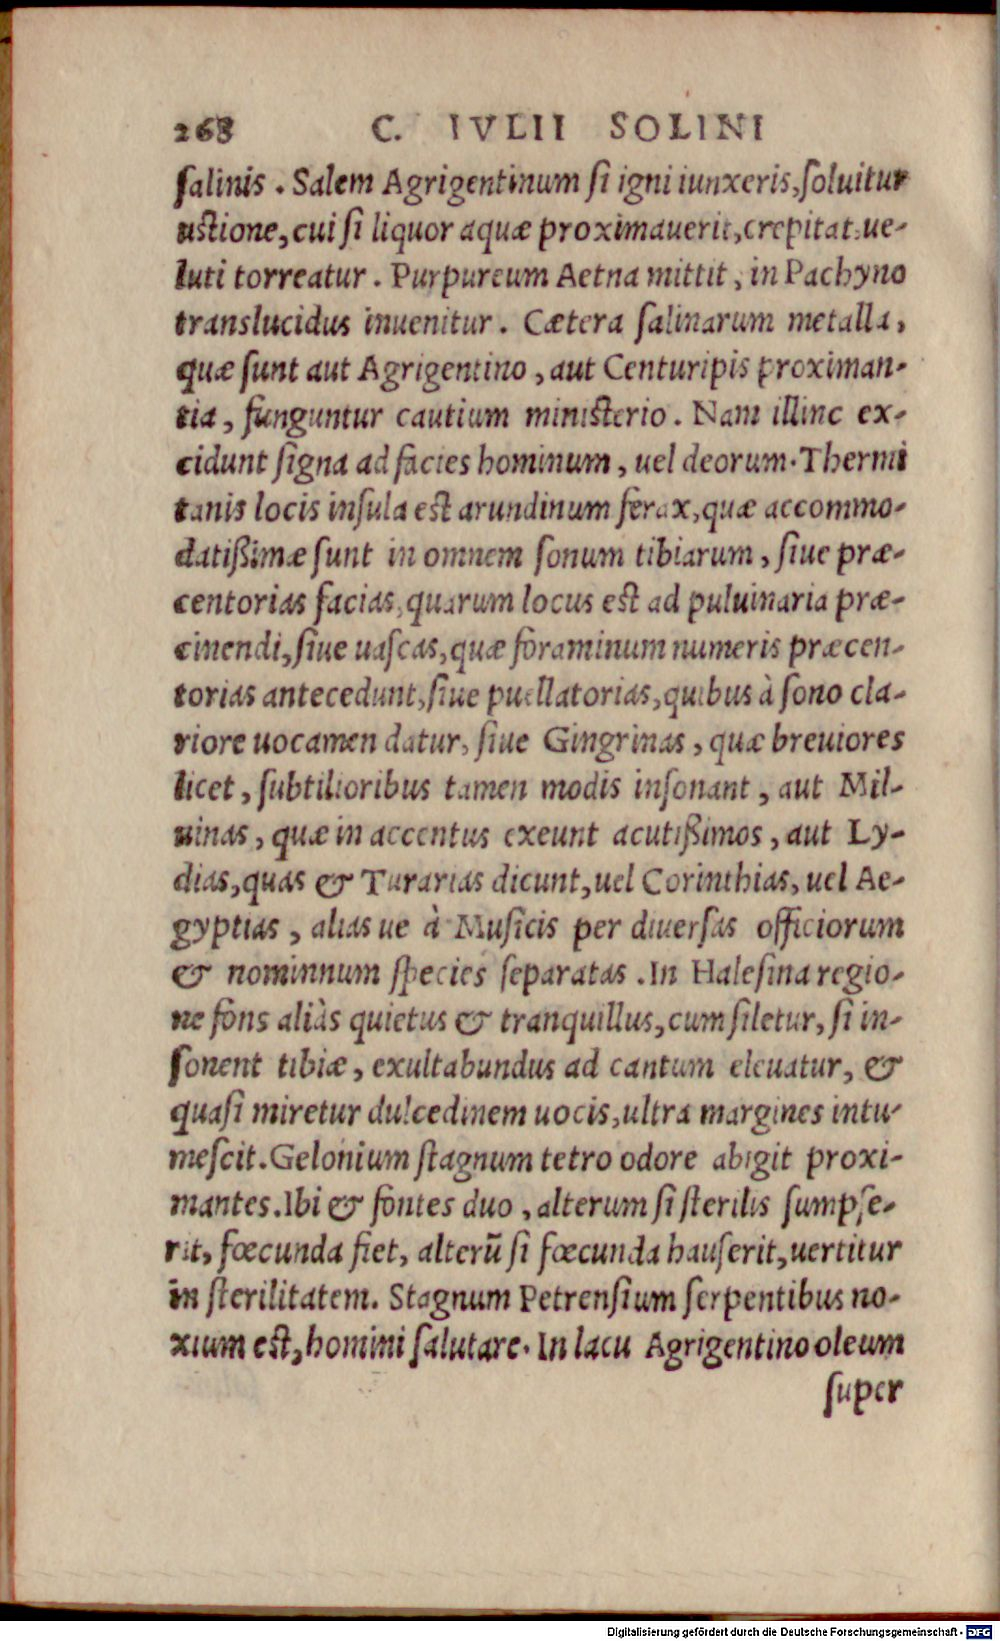 268 C. IVLII SOLINI
salinis. Salem Agrigentinum si igni iunxeris, soluitur
ustione, cui si liquor aquæ proximauerit, crepitat, ue-
luti torreatur. Purpureum Aetna mittit, in Pachyno
translucidus inuenitur. Cætera salinarum metalla,
quæ sunt aut Agrigentino, aut Centuripis proximan-
tia, funguntur cautium ministerio. Nam illinc ex-
cidunt signa ad facies hominum, uel deorum. Thermi
tanis locis insula est arundinum ferax, quæ accommo-
datißimæ sunt in omnem sonum tibiarum, siue præ-
centorias facias, quarum locus est ad puluinaria præ-
cinendi, siue uascas, quæ foraminum numeris præcen-
torias antecedunt, siue puellatorias, quibus à sono cla-
riore uocamen datur, siue Gingrinas, quæ breuiores
licet, subtilioribus tamen modis insonant, aut Mil-
uinas, quæ in accentus exeunt acutißimos, aut Ly-
dias, quas & Turarias dicunt, uel Corinthias, uel Ae-
gyptias, alias ue à Musicis per diuersas officiorum
& nominnum species separatas. In Halesina regio-
ne fons aliàs quietus & tranquillus, cum siletur, si in-
sonent tibiæ, exultabundus ad cantum eleuatur, &
quasi miretur dulcedinem uocis, ultra margines intu-
mescit. Gelonium stagnum tetro odore abigit proxi-
mantes. Ibi & fontes duo, alterum si sterilis sumpse-
rit, fœcunda fiet, alterũ si fœcunda hauserit, uertitur
in sterilitatem. Stagnum Petrensium serpentibus no-
xium est, homini salutare. In lacu Agrigentino oleum
super
Digitalisierung gefördert durch die Deutsche Forschungsgemeinschaft - DFG